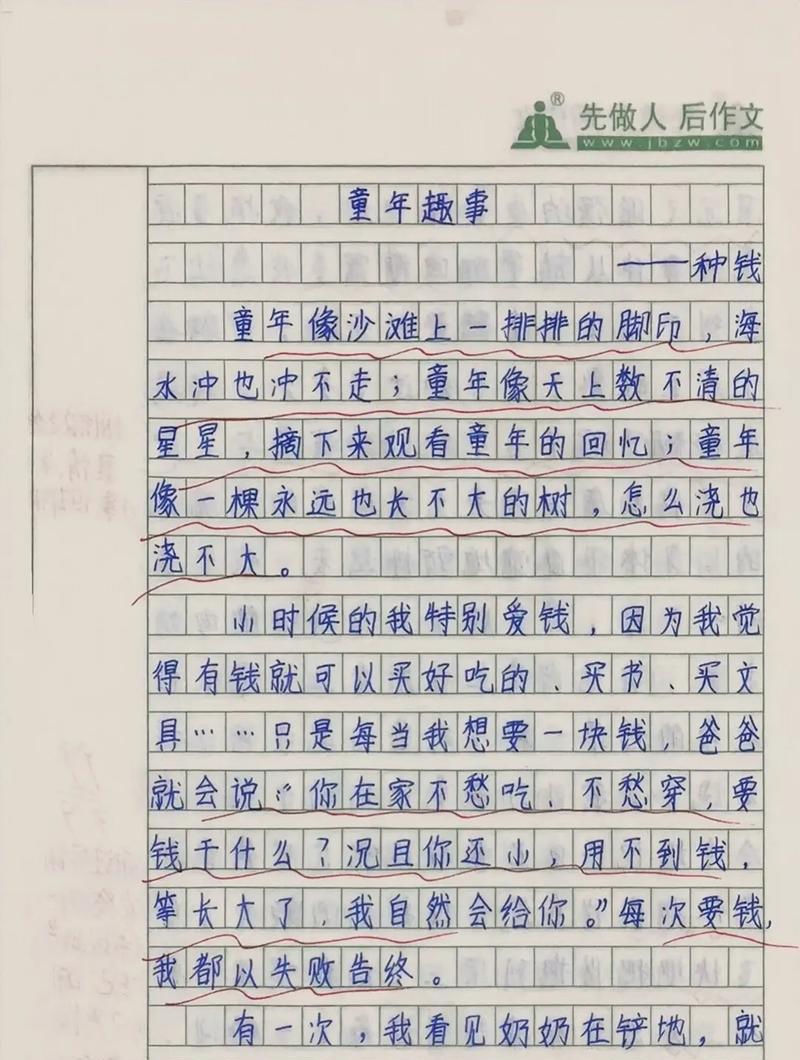 先做人 后作文
www.jbzw.com
童年趣事
——种钱
童年像沙滩上一排排的脚印，海
水冲也冲不走；童年像天上数不清的
星星，摘下来观看童年的回忆；童年
像一棵永远也长不大的树，怎么浇也
浇不大。
小时候的我特别爱钱，因为我觉
得有钱就可以买好吃的、买书、买文
具……只是每当我想要一块钱，爸爸
就会说：“你在家不愁吃、不愁穿，要
钱干什么？况且你还小，用不到钱，
等长大了，我自然会给你。”每次要钱，
我都以失败告终。
有一次，我看见奶奶在铲地，就